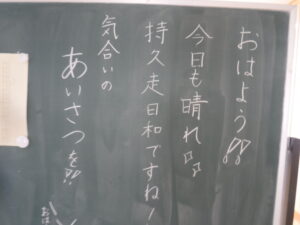 おはよう!!
今日も晴れ♪♪
持久走日和ですね!
気合いの
あいさつを!!
おは